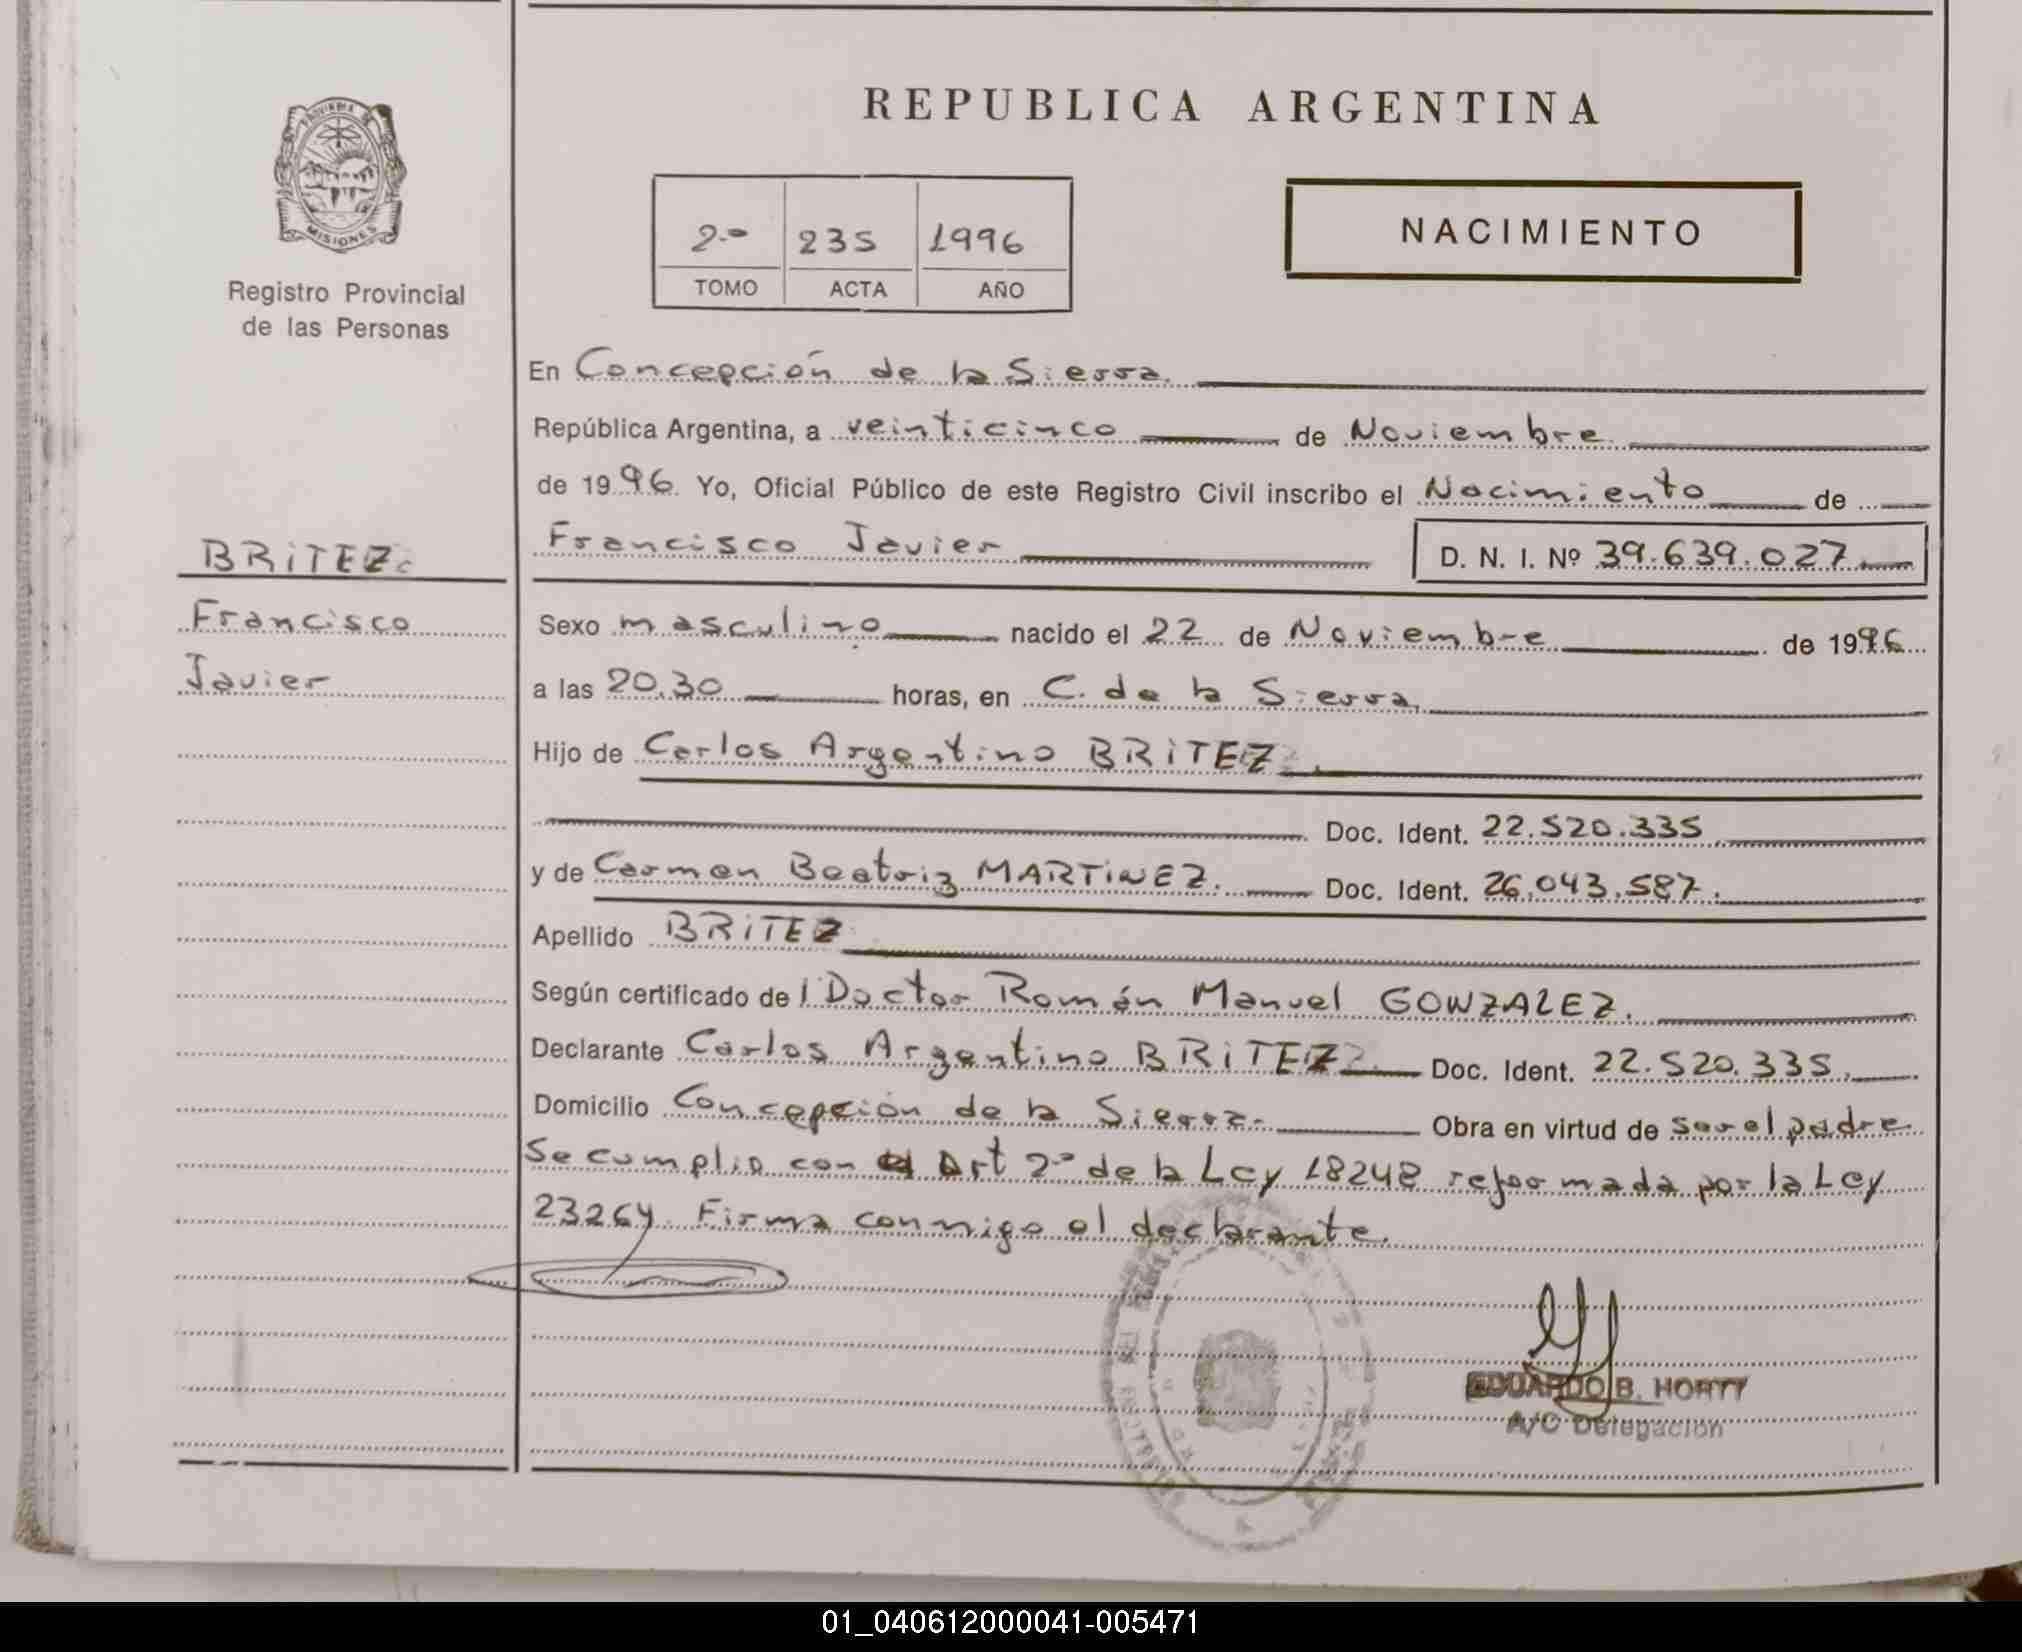 REPUBLICA ARGENTINA
PROVINCIA DE
MISIONES
Registro Provincial
de las Personas
2º 235 1996
TOMO ACTA AÑO
NACIMIENTO
En Concepción de la Sierra.
República Argentina, a veinticinco de Noviembre
de 1996. Yo, Oficial Público de este Registro Civil inscribo el Nacimiento de
BRiTEZ
Francisco Javier D. N. I. Nº 39.639.027
Francisco
Sexo masculino nacido el 22 de Noviembre de 1996
Javier
a las 20.30 horas, en C. de la Sierra
Hijo de Carlos Argentino BRiTEZ
Doc. Ident. 22.520.335
y de Carmen Beatriz MARTiNEZ. Doc. Ident. 26.043.587.
Apellido BRiTEZ
Según certificado del Doctor Román Manuel GONZALEZ.
Declarante Carlos Argentino BRiTEZ Doc. Ident. 22.520.335.
Domicilio Concepción de la Sierra. Obra en virtud de ser el padre
Se cumplio con el Art 2º de la Ley 18248 reformada por la Ley
23264. Firma conmigo el declarante.
EDUARDO B. HORTY
A/C Delegación
01_040612000041-005471